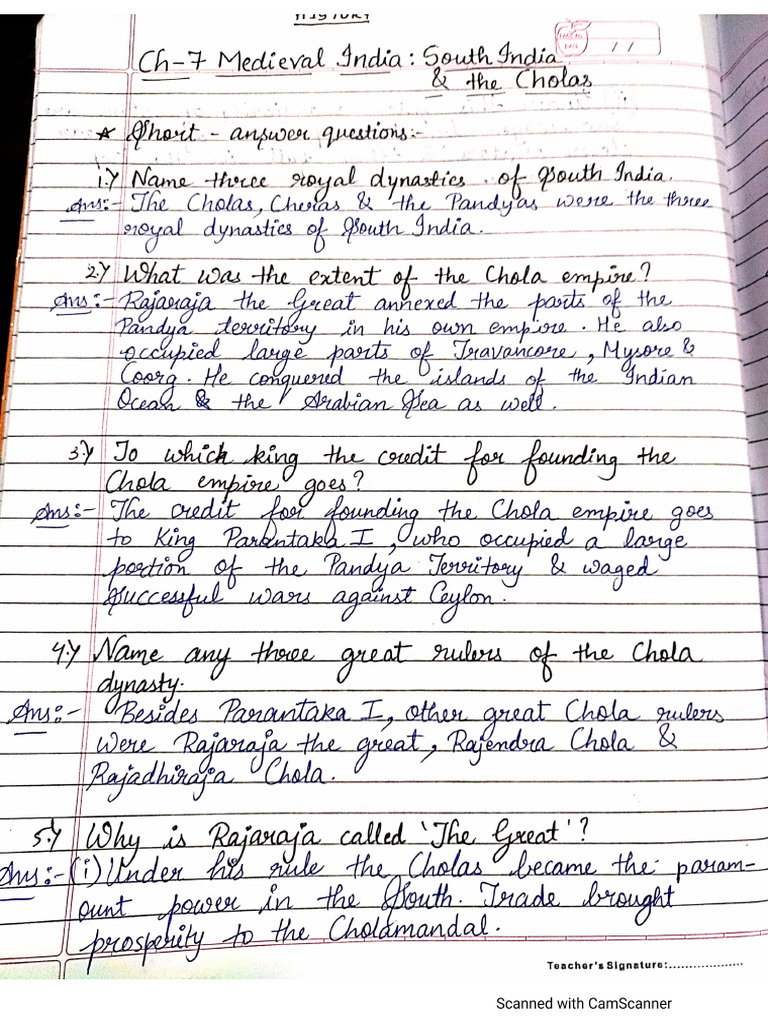 HISTORY
Ch-7 Medieval India: South India
& the Cholas
/ /
* Short - answer questions:-
1.) Name three royal dynastics of South India.
Ans:- The Cholas, Cheras & the Pandyas were the three
royal dynastics of South India.
2.) What was the extent of the Chola empire?
Ans:- Rajaraja the Great annexed the parts of the
Pandya territory in his own empire. He also
occupied large parts of Travancore, Mysore &
Coorg. He conquered the islands of the Indian
Ocean & the Arabian Sea as well.
3.) To which king the credit for founding the
Chola empire goes?
Ans:- The credit for founding the Chola empire goes
to King Parantaka I, who occupied a large
portion of the Pandya Territory & waged
successful wars against Ceylon.
4.) Name any three great rulers of the Chola
dynasty.
Ans:- Besides Parantaka I, other great Chola rulers
were Rajaraja the great, Rajendra Chola &
Rajadhiraja Chola.
5.) Why is Rajaraja called 'The Great'?
Ans:- (i) Under his rule the Cholas became the param-
ount power in the South. Trade brought
prosperity to the Cholamandal.
Teacher's Signature:...................
Scanned with CamScanner